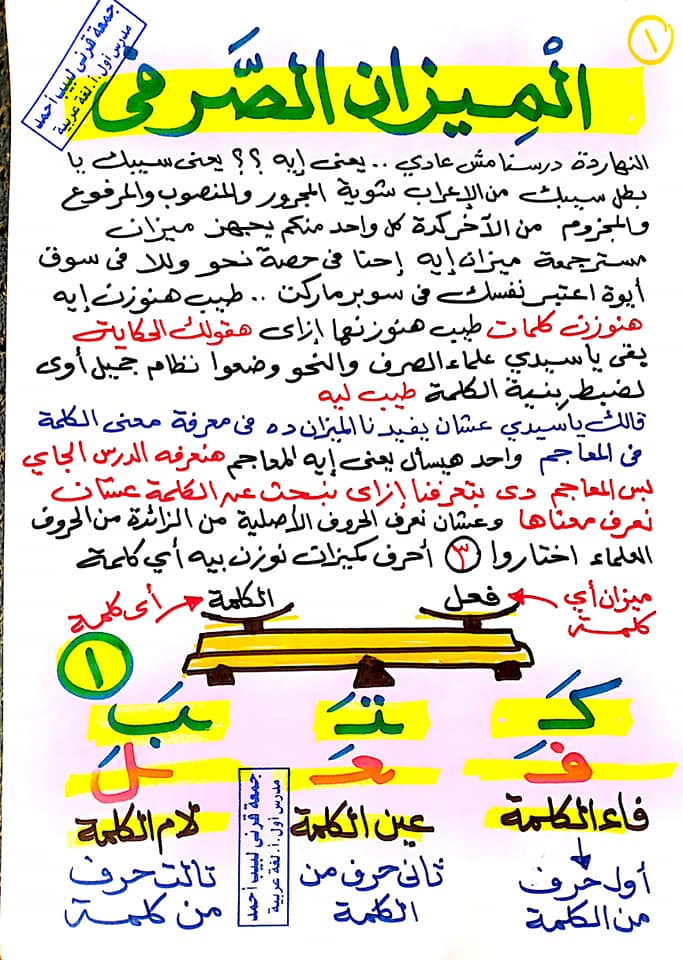 ١
جمعة قرنى لبيب أحمد
مدرس أول أ. لغة عربية
الْمِيزان الصَّرفى
النهاردة درسنا مش عادي .. يعنى إيه ؟؟ يعنى سيبك يا
بطل سيبك من الإعراب شوية المجرور والمنصوب والمرفوع
والمجزوم من الآخر كدة كل واحد منكم يجهز ميزان
مسترجمعة ميزان إيه إحنا فى حصة نحو وللا فى سوق
أيوة اعتبر نفسك فى سوبر ماركت .. طيب هنوزن إيه
هنوزن كلمات طيب هنوزنها إزاى هقولك الحكاية
بقى ياسيدي علماء الصرف والنحو وضعوا نظام جميل أوى
لضبط بنية الكلمة طيب ليه
قالك ياسيدي عشان يفيدنا الميزان ده فى معرفة معنى الكلمة
فى المعاجم واحد هيسأل يعنى إيه المعاجم هنعرفه الدرس الجاي
بس المعاجم دى بتعرفنا إزاى بنبحث عن الكلمة عشان
نعرف معناها وعشان نعرف الحروف الأصلية من الزائدة من الحروف
العلماء اختاروا ٣ أحرف كميزان نوزن بيه أي كلمة
ميزان أي كلمة
فعل
الكلمة
أى كلمة
١
كَـ ـتَـ ـبَ
فَـ ـعَـ ـلَ
فاء الكلمة عين الكلمة لام الكلمة
أول حرف من الكلمة
ثانى حرف من الكلمة
ثالث حرف من كلمة
جمعة قرنى لبيب أحمد
مدرس أول أ. لغة عربية